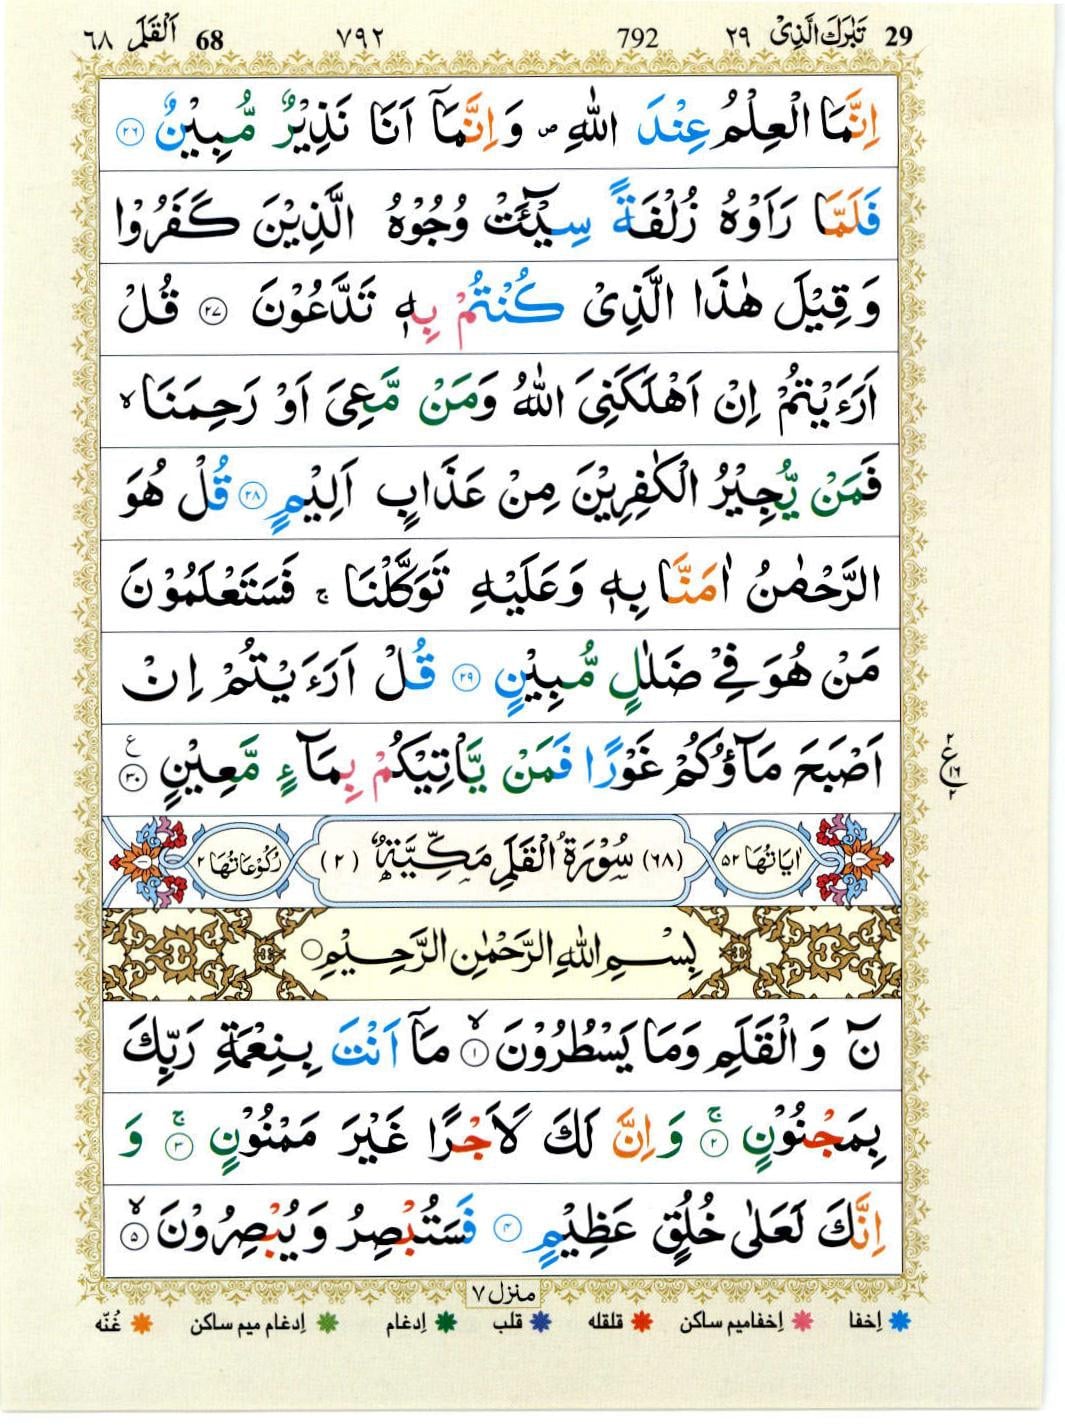 29 تَبٰرَكَ الَّذِیْ ٢٩ 792 ٧٩٢ 68 اَلْقَلَم ٦٨
اِنَّمَا الْعِلْمُ عِنْدَ اللّٰهِ ۪ وَاِنَّمَاۤ اَنَا نَذِیْرٌ مُّبِیْنٌ ٢٦
فَلَمَّا رَاَوْهُ زُلْفَةً سِیْٓـَٔتْ وُجُوْهُ الَّذِیْنَ كَفَرُوْا
وَقِیْلَ هٰذَا الَّذِیْ كُنْتُمْ بِهٖ تَدَّعُوْنَ ٢٧ قُلْ
اَرَءَیْتُمْ اِنْ اَهْلَكَنِیَ اللّٰهُ وَمَنْ مَّعِیَ اَوْ رَحِمَنَا ۙ
فَمَنْ یُّجِیْرُ الْكٰفِرِیْنَ مِنْ عَذَابٍ اَلِیْمٍ ٢٨ قُلْ هُوَ
الرَّحْمٰنُ اٰمَنَّا بِهٖ وَعَلَیْهِ تَوَكَّلْنَا ۚ فَسَتَعْلَمُوْنَ
مَنْ هُوَ فِیْ ضَلٰلٍ مُّبِیْنٍ ٢٩ قُلْ اَرَءَیْتُمْ اِنْ
اَصْبَحَ مَآؤُكُمْ غَوْرًا فَمَنْ یَّاْتِیْكُمْ بِمَآءٍ مَّعِیْنٍ ٣٠ ع
٢
ع ١٦
٢
اٰیَاتُهَا ٥٢ (٦٨) سُوْرَةُ الْقَلَمِ مَكِّیَّةٌ (٢) رُكُوْعَاتُهَا ٢
بِسْمِ اللّٰهِ الرَّحْمٰنِ الرَّحِیْمِ
نٓ وَالْقَلَمِ وَمَا یَسْطُرُوْنَ ۙ ١ مَاۤ اَنْتَ بِنِعْمَةِ رَبِّكَ
بِمَجْنُوْنٍ ۚ ٢ وَاِنَّ لَكَ لَاَجْرًا غَیْرَ مَمْنُوْنٍ ۚ ٣ وَ
اِنَّكَ لَعَلٰی خُلُقٍ عَظِیْمٍ ٤ فَسَتُبْصِرُ وَیُبْصِرُوْنَ ۙ ٥
منزل ٧
اِخفا اِخفامیم ساكن قلقله قلب اِدغام اِدغام میم ساكن غُنّه